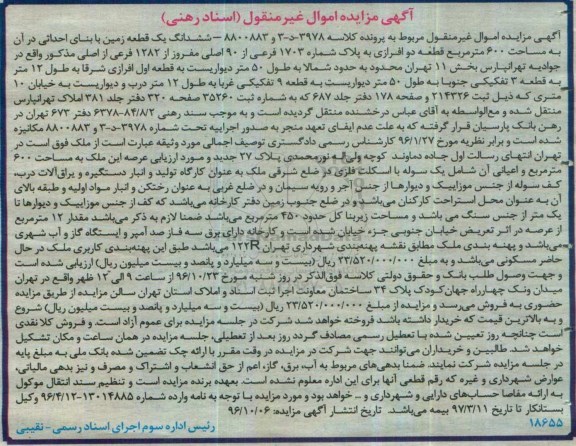 آگهی مزایده اموال غیرمنقول (اسناد رهنی)
آگهی مزایده اموال غیرمنقول مربوط به پرونده کلاسه ۳۹۷۸-د-۳ و ۸۸۰۰۸۸۳ –ششدانگ یک قطعه زمین با بنای احداثی در آن
به مساحت ۶۰۰ مترمربع قطعه دو افرازی به پلاک شماره ۱۷۰۳ فرعی از ۹۰ اصلی مفروز از ۱۲۸۲ فرعی از اصلی مذکور واقع در
جوادیه تهرانپارس بخش ۱۱ تهران محدود به حدود شمالا به طول ۵۰ متر دیواریست به قطعه اول افرازی شرقا به طول ۱۲ متر
به قطعه ۳ تفکیکی جنوبا به طول ۵۰ متر دیواریست به قطعه ۹ تفکیکی غربا به طول ۱۲ متر درب و دیواریست به خیابان ۱۰
متری که ذیل ثبت ۲۱۴۳۲۶ و صفحه ۱۷۸ دفتر جلد ۶۸۷ که به شماره ثبت ۳۵۲۶۰ صفحه ۳۲۰ دفتر جلد ۳۸۱ املاک تهرانپارس
منتقل شده و مع‌الواسطه به آقای عباس درخشنده منتقل گردیده است و به موجب سند رهنی ۸۴/۸/۲–۶۳۷۸ دفتر ۶۷۳ تهران در
رهن بانک پارسیان قرار گرفته که به علت عدم ایفای تعهد منجر به صدور اجراییه تحت شماره ۳۹۷۸-د-۳ و ۸۸۰۰۸۸۳ مکانیزه
شده است و برابر نظریه مورخ ۹۶/۱/۲۷ کارشناس رسمی دادگستری توصیف اجمالی مورد وثیقه عبارت است از ملک فوق است در
تهران انتهای رسالت اول جاده دماوند کوچه ولی‌اله نورمحمدی پلاک ۲۷ جدید و مورد ارزیابی عرصه این ملک به مساحت ۶۰۰
مترمربع و اعیانی آن شامل یک سوله با اسکلت فلزی در ضلع شرقی ملک به عنوان کارگاه تولید و انبار دستگیره و یراق‌آلات درب،
کف سوله از جنس موزاییک و دیوارها از جنس آجر و رویه سیمان و در ضلع غربی به عنوان رختکن و انبار مواد اولیه و طبقه بالای
آن به عنوان محل استراحت کارکنان می‌باشد و در ضلع جنوب زمین دفتر کارخانه می‌باشد که کف از جنس موزاییک و دیوارها تا
یک متر از جنس سنگ می باشد و مساحت زیربنا کل حدود ۴۵۰ مترمربع می‌باشد ضمنا لازم به ذکر می‌باشد مقدار ۱۲ مترمربع
از عرصه در اثر تعریض خیابان جنوبی جزء خیابان شده است و کارخانه دارای برق سه فاز صد آمپر و ایستگاه گاز و آب شهری
می‌باشد و پهنه بندی ملک مطابق نقشه پهنه‌بندی شهرداری تهران R۱۲۲ می‌باشد طبق این پهنه‌بندی کاربری ملک در حال
حاضر مسکونی می‌باشد و به مبلغ ۲۳/۵۲۰/۰۰۰/۰۰۰ ریال (بیست و سه میلیارد و پانصد و بیست میلیون ریال) ارزیابی شده است
و جهت وصول طلب بانک و حقوق دولتی کلاسه فوق‌الذکر در روز شنبه مورخ ۹۶/۱۰/۲۳ از ساعت ۹ الی ۱۲ ظهر واقع در تهران
میدان ونک چهارراه جهان‌کودک پلاک ۳۴ ساختمان معاونت اجرا ثبت اسناد و املاک استان تهران سالن مزایده از طریق مزایده
حضوری به فروش می‌رسد و مزایده از مبلغ ۲۳/۵۲۰/۰۰۰/۰۰۰ ریال (بیست و سه میلیارد و پانصد و بیست میلیون ریال) شروع
و به بالاترین قیمت که خریدار داشته باشد فروخته خواهد شد شرکت در جلسه مزایده برای عموم آزاد است. و فروش کلا نقدی
است چنانچه روز تعیین شده با تعطیل رسمی مصادف گردد روز بعد از تعطیلی، جلسه مزایده در همان ساعت و مکان تشکیل
خواهد شد. طالبین و خریداران می‌توانند جهت شرکت در مزایده در وقت مقرر با ارائه چک تضمین شده بانک ملی به مبلغ پایه
در جلسه مزایده شرکت نمایند. ضمنا بدهی‌های مربوط به آب، برق، گاز، اعم از حق انشعاب و اشتراک و مصرف و نیز بدهی مالیاتی،
عوارض شهرداری و غیره که رقم قطعی آنها برای این اداره معلوم نشده است. بعهده برنده مزایده است و تنظیم سند انتقال موکول
به ارائه مفاصا حساب‌های دارایی و شهرداری و ... خواهد بود و مورد مزایده با توجه به نامه وارده شماره ۱۳۰۱۴۸۸۵–۹۶/۴/۱۲ وکیل
بستانکار تا تاریخ ۹۷/۳/۱۱ بیمه می‌باشد. تاریخ انتشار آگهی مزایده: ۹۶/۱۰/۰۶
۱۸۶۵۵ رئیس اداره سوم اجرای اسناد رسمی-نقیبی